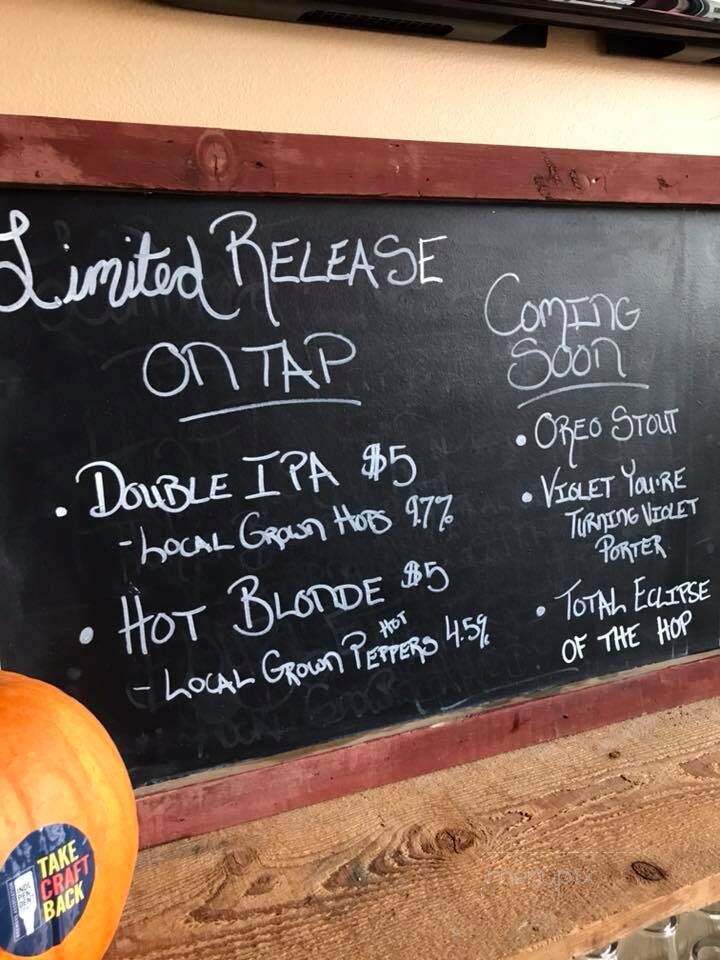 Limited RELEASE
ON TAP
• DOUBLE IPA $5
- LOCAL GROWN HOPS 9.7%
• HOT BLONDE $5
HOT
- LOCAL GROWN PEPPERS 4.5%
COMING
SOON
• OREO STOUT
• VIOLET YOU'RE
TURNING VIOLET
PORTER
• TOTAL ECLIPSE
OF THE HOP
TAKE
CRAFT
BACK
INDE
PEN
DENT